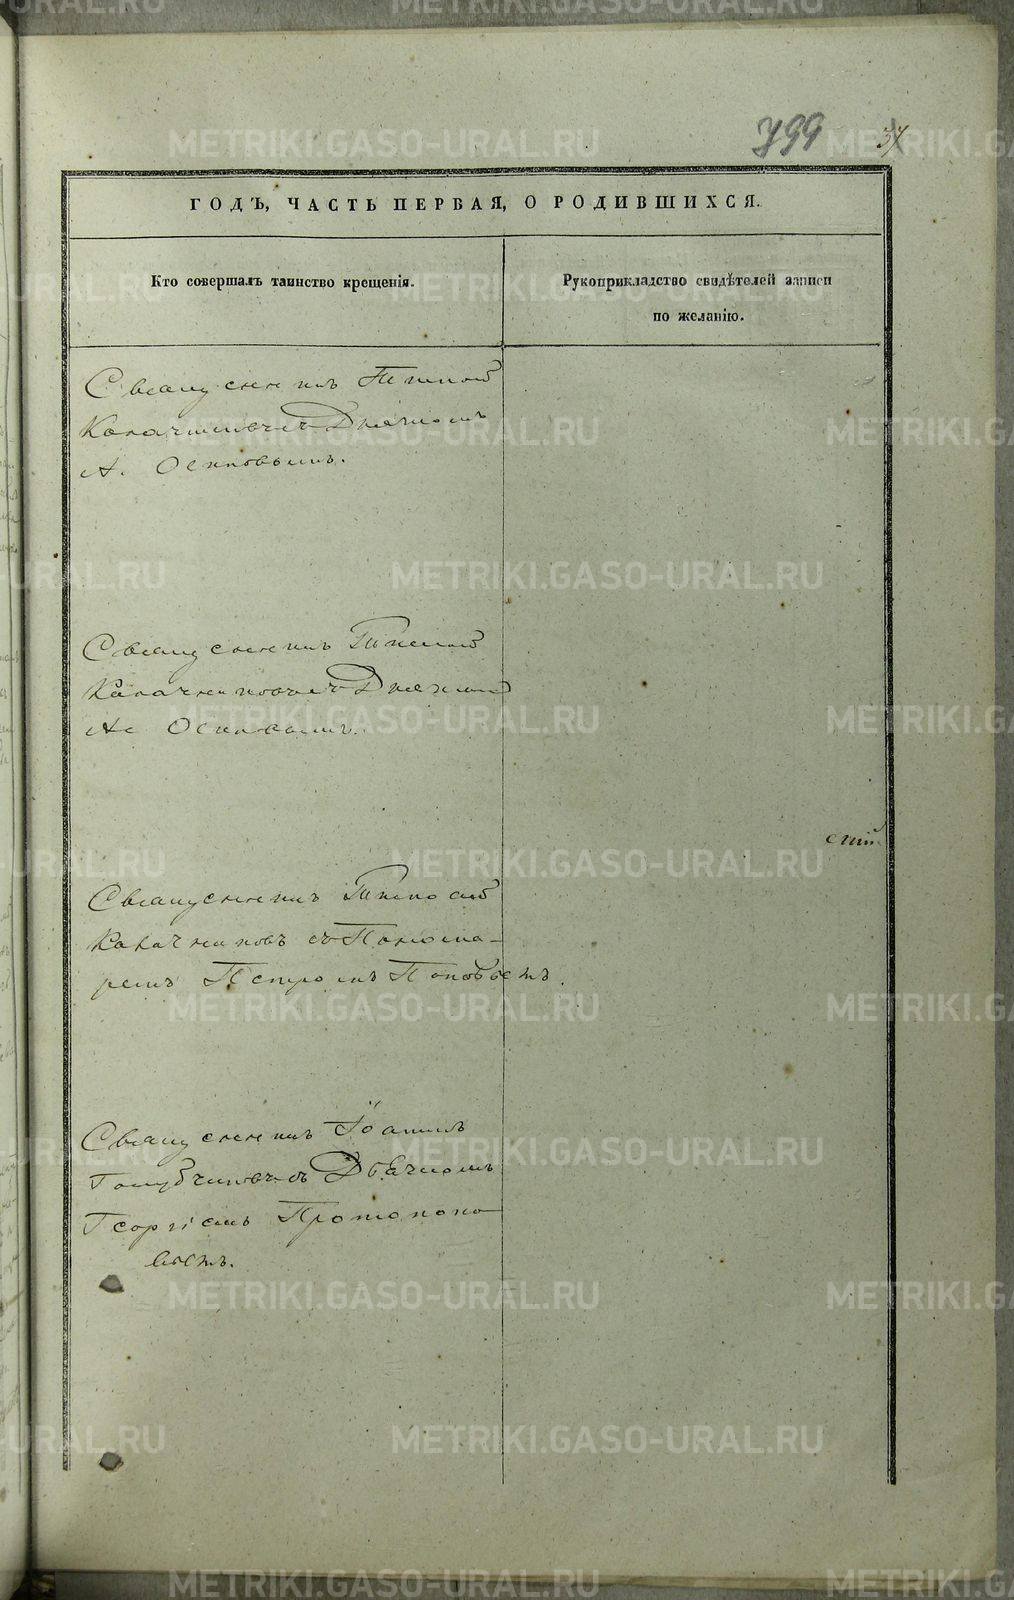 799 37
ГОДЪ, ЧАСТЬ ПЕРВАЯ, О РОДИВШИХСЯ.
Кто совершалъ таинство крещенія.
Рукоприкладство свидѣтелей записи
по желанію.
Священникъ
Калачниковъ съ Дьячкомъ
А. Осиповымъ.
Священникъ
Калачниковъ съ Дьячкомъ
Ал Осиповымъ.
Священникъ
Калачниковъ съ Понома-
ремъ Петромъ Поповымъ.
Священникъ Іоаннъ
Голубчиковъ съ Дьячкомъ
Георгіемъ Протопопо
вымъ.
METRIKI.GASO-URAL.RU